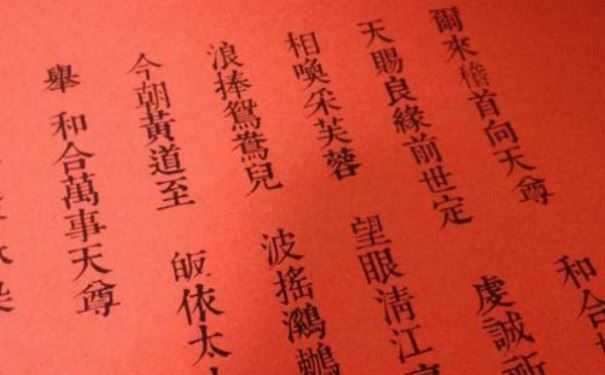 爾來稽首向天尊 和合
天賜良緣前世定 虔誠祈
相喚采芙蓉 望眼清江
浪捧鴛鴦兒 波搖鸂鶒
今朝黃道至 皈依太
舉 和合萬事天尊